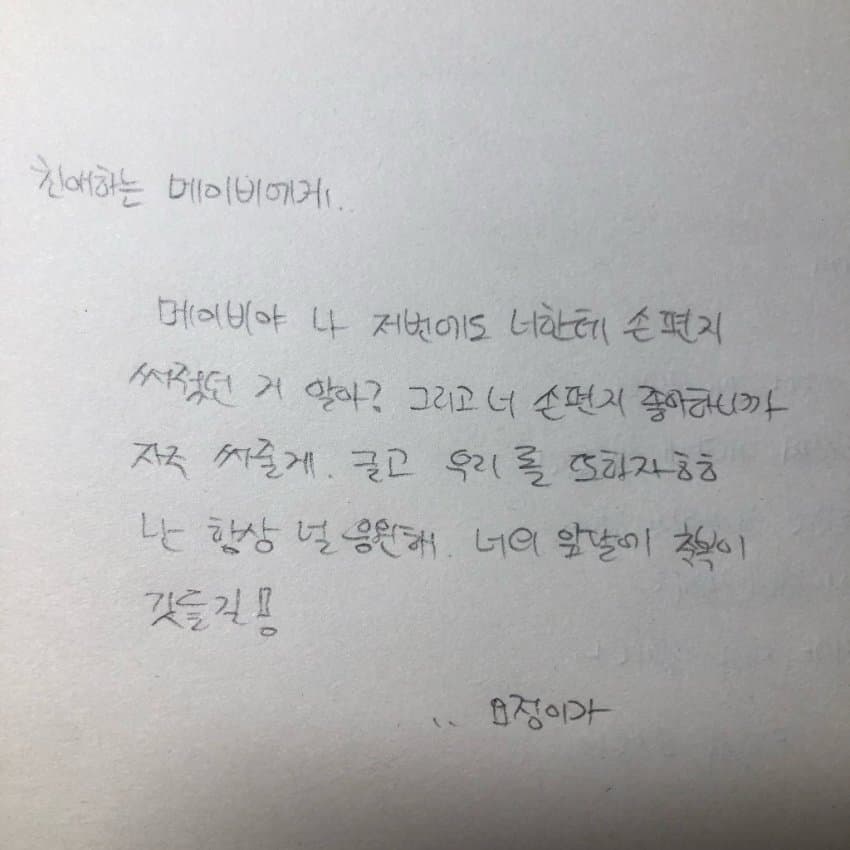 친애하는 메이비에게..
메이비야 나 저번에도 너한테 손편지
써줬던 거 알아? 그리고 너 손편지 좋아하니까
자주 써줄게. 글고 우리 롤 또하자ㅎㅎ
난 항상 널 응원해. 너의 앞날에 축복이
깃들길!!
.. 요정이가